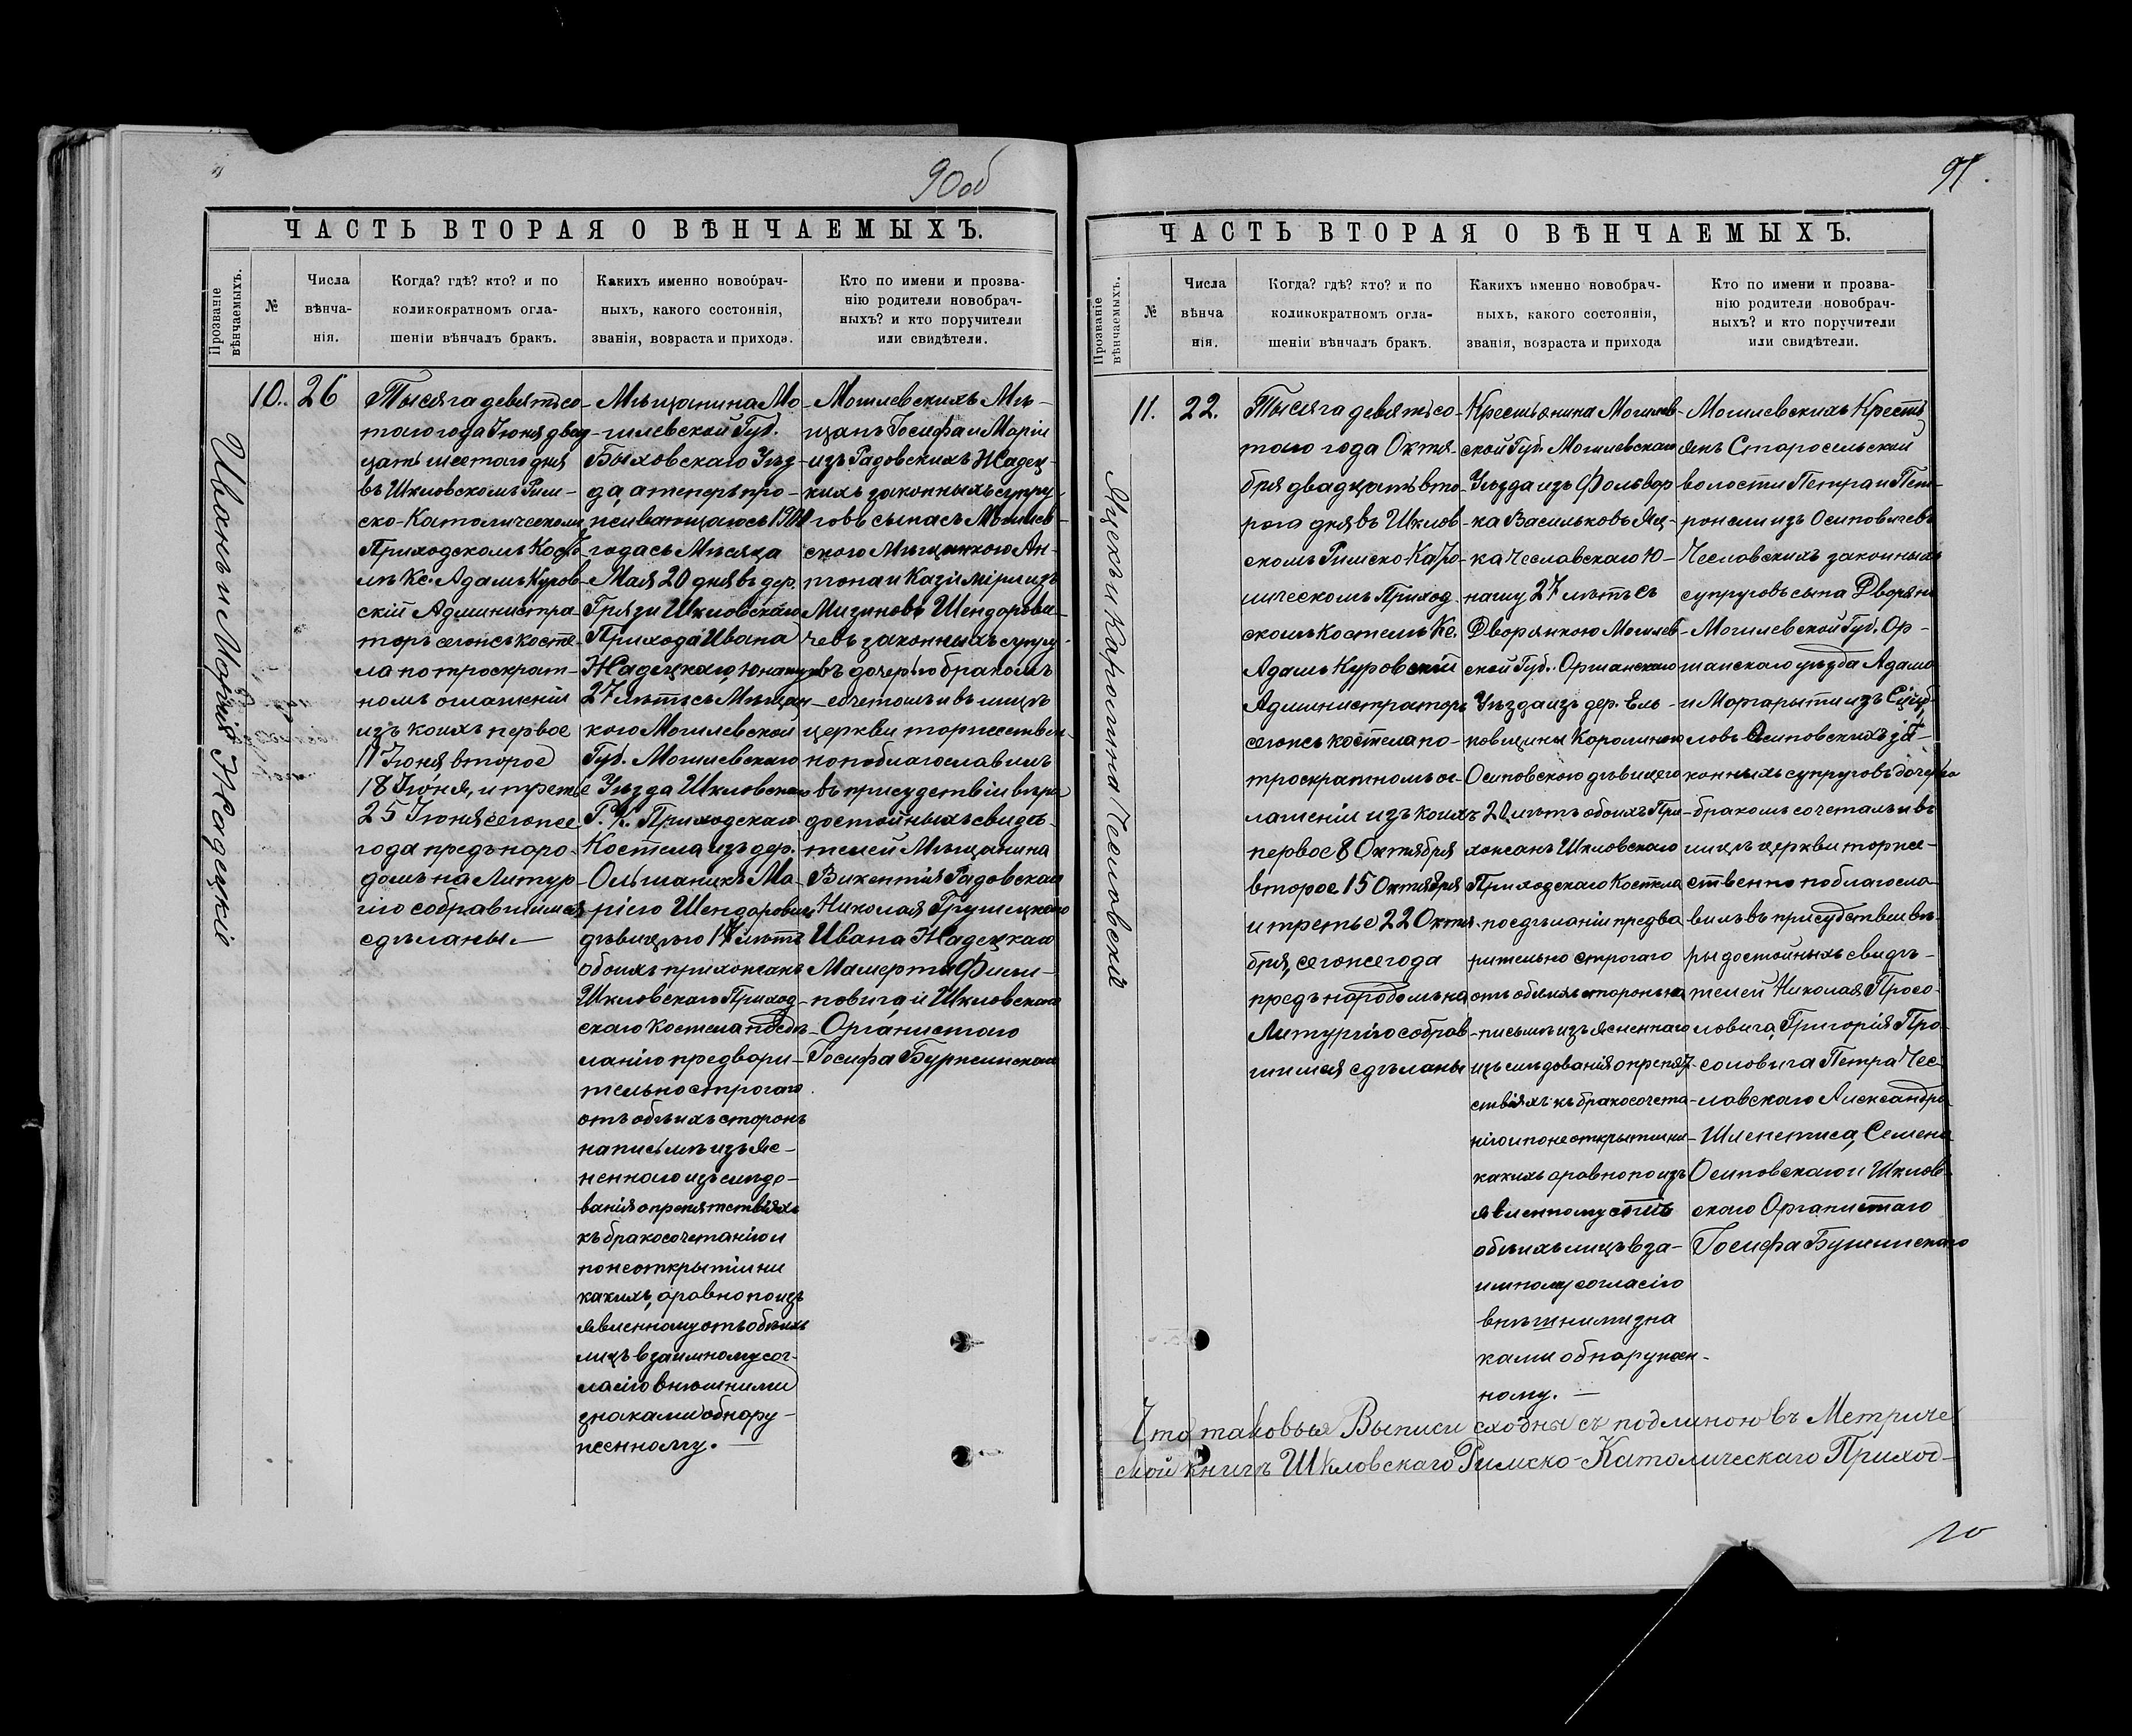 90об
ЧАСТЬ ВТОРАЯ О ВѢНЧАЕМЫХЪ.
Прозваніе
вѣнчаемыхъ.
№
Числа
вѣнча-
нія.
Когда? гдѣ? кто? и по
коликократномъ огла-
шеніи вѣнчалъ бракъ.
Какихъ именно новобрач-
ныхъ, какого состоянія,
званія, возраста и прихода.
Кто по имени и прозва-
нію родители новобрач-
ныхъ? и кто поручители
или свидѣтели.
Иванъ и Марія Жадецкіе
10.
26
Тысяча девятьсо-
таго года Іюня двад-
цать шестаго дня
въ Шкловскомъ Рим-
ско-Католическомъ
Приходскомъ Косте-
лѣ Кс. Адамъ Куров-
скій Администра-
торъ сегоже косте-
ла по троекрат-
номъ оглашеніи
изъ коихъ первое
11 Іюня второе
18 Іюня, и третье
25 Іюня сегоже
года предъ наро-
домъ на Литур-
гію собравшимся
сдѣланы.—
Мѣщанина Мо-
гилевской Губ.
Быховскаго Уѣз-
да, а теперь про-
живающаюсь 1900
года съ Мѣсяца
Мая 20 дня въ дер.
Грязи Шкловскаго
Прихода Ивана
Жадецкаго Юношу
27 лѣтъ съ Мѣщан-
кою Могилевской
Губ. Могилевскаго
Уѣзда Шкловскаго
Р. К. Приходскаго
Костела изъ дер.
Ольшаникъ Ма-
рією Шендоровичъ
дѣвицею 17 лѣтъ
обоихъ прихожанъ
Шкловскаго Приход-
скаго Костела по сдѣ-
ланію предвори-
тельно строгаго
отъ обѣихъ сторонъ
на письмѣ изъяс-
неннаго изслѣдо-
ванія о препятствіяхъ
къ бракосочетанію и
по неоткрытіи ни
какихъ, а равно по изъ
явленному отъ обѣихъ
лицъ взаимному сог-
ласію внюшними
знаками обнару-
женному.—
Могилевскихъ Мѣ-
щанъ Іосифа и Маріи
изъ Гадовскихъ Жадец-
кихъ законныхъ супру-
говъ сына съ Могилев-
скою Мѣщанкою Ан-
тона и Казіміры изъ
Мизиновъ Шендорови-
чевъ законныхъ супру-
говъ дочерью бракомъ
сочеталъ и въ лицѣ
церкви торжествен-
но поблагославилъ
въ присудствіи вѣры
достойныхъ свидѣ-
телей Мѣщанина
Викентія Гадовскаго
Николая Грушецкаго
Ивана Жадецкаго
Мамерта Фили-
повича, и Шкловскаго
Органистаго
Іосифа Буржинскаго
91.
ЧАСТЬ ВТОРАЯ О ВѢНЧАЕМЫХЪ.
Прозваніе
вѣнчаемыхъ.
№
Числа
вѣнча
нія.
Когда? гдѣ? кто? и по
коликократномъ огла-
шеніи вѣнчалъ бракъ.
Какихъ именно новобрач-
ныхъ, какого состоянія,
званія, возраста и прихода
Кто по имени и прозва-
нію родители новобрач-
ныхъ? и кто поручители
или свидѣтели.
Яцекъ и Каролина Чеславскіе
11.
22.
Тысяча девятьсо-
таго года Октя-
бря двадцать вто-
рога дня въ Шклов-
скомъ Римско-Като-
лическомъ Приход-
скомъ Костелѣ Кс.
Адамъ Куровскій
Администраторъ
сегожъ костела по-
троекратномъ ог-
лашеніи изъ коихъ
первое 8 Октября
второе 15 Октября
и третье 22 Октя-
бря, сегоже года
предъ народомъ на
Литургію собрав-
шимся сдѣланы
Крестьянина Могилев-
ской Губ. Могилевскаго
Уѣзда изъ Фольвар
ка Васильковъ Яц-
ка Чеславскаго Ю-
ношу 27 лѣтъ съ
Дворянкою Могилев-
ской Губ. Оршанскаго
Уѣзда изъ дер. Ель-
ковщины Каролиною
Осиповскою дѣвицею
20 лѣтъ обоихъ При-
хожанъ Шкловскаго
Приходскаго Костела
по сдѣланіи предва
рительно строгаго
отъ обѣихъ сторонъ на
письмѣ изъясненнаго
изслѣдованія о препят-
ствіяхъ къ бракосочета-
нію и по неоткрытіи ни-
какихъ а равно по изъ
явленному отъ
обѣихъ лицъ вза-
имному согласію
внѣшними зна
ками обнаружен-
ному.—
Могилевскихъ Крестъ
янъ Старосельской
волости Петра и Пет-
ронели изъ Осиповичевъ
Чеславскихъ законныхъ
супруговъ сына Дворянъ
Могилевской Губ. Ор-
шанскаго уѣзда Адама
и Маргарыты изъ
Осиповскихъ за-
конныхъ супруговъ дочерью
бракомъ сочеталъ и въ
лицѣ церкви торже-
ственно поблагосла-
вилъ въ присудствіи вѣ-
ры достойныхъ свидѣ-
телей Николая Просо-
ловича, Григорія Про-
соловича Петра Чес-
лавскаго Александра
Шлепетиса, Семена
Осиповскаго и Шклов-
скаго Органистаго
Іосифа Бужинскаго
Что таковыя Выписи сходны съ подлиною въ Метриче
ской книгѣ Шкловскаго Римско-Католическаго Приход-